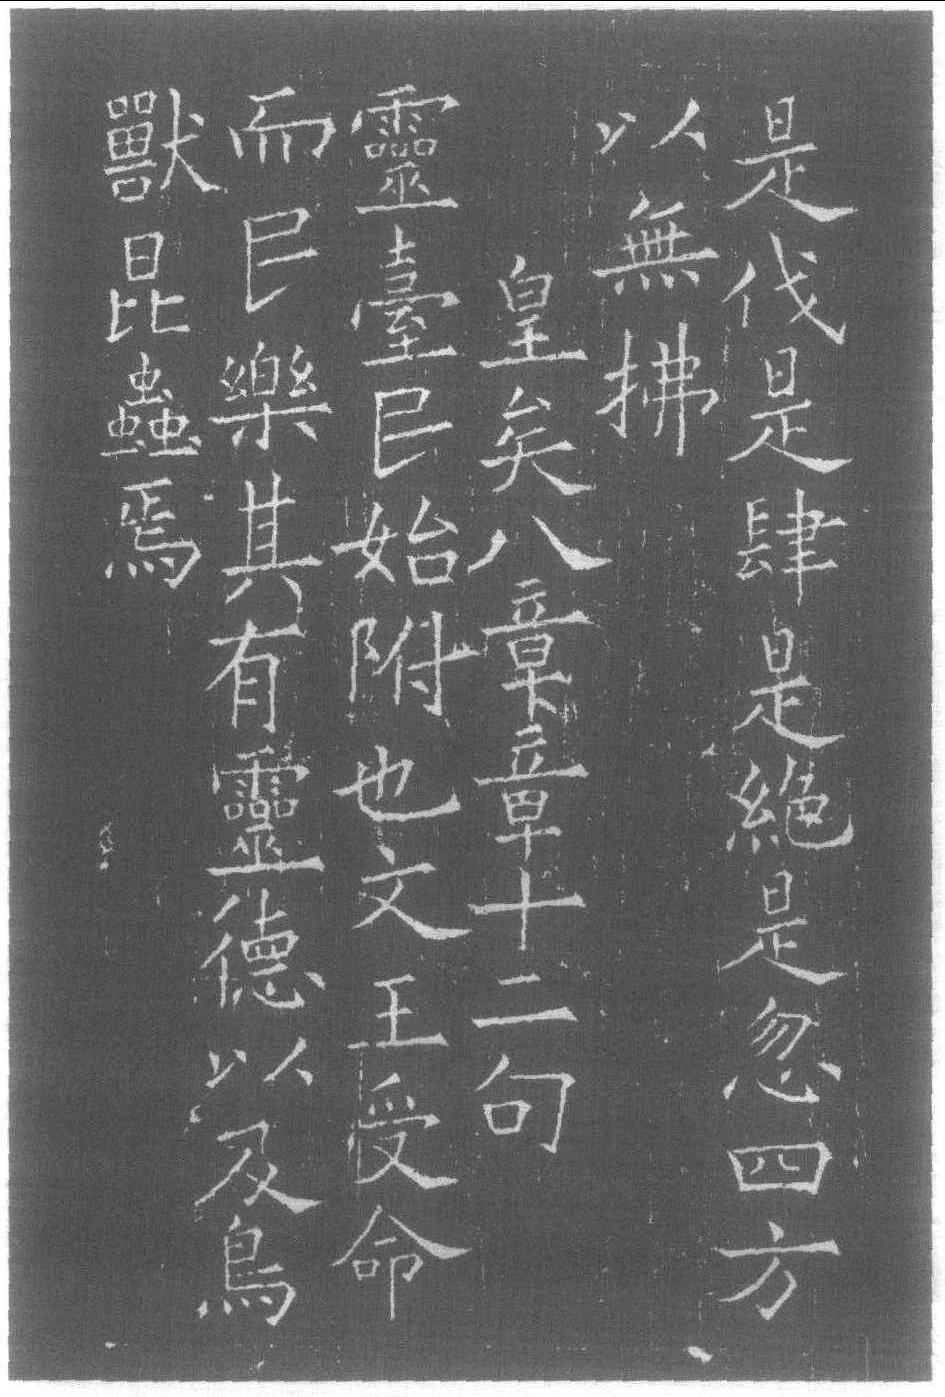 是伐是肆是絶是忽四方
以無拂
皇矣八章章十二句
靈臺民始附也文王受命
而民樂其有靈德以及鳥
獸昆蟲焉